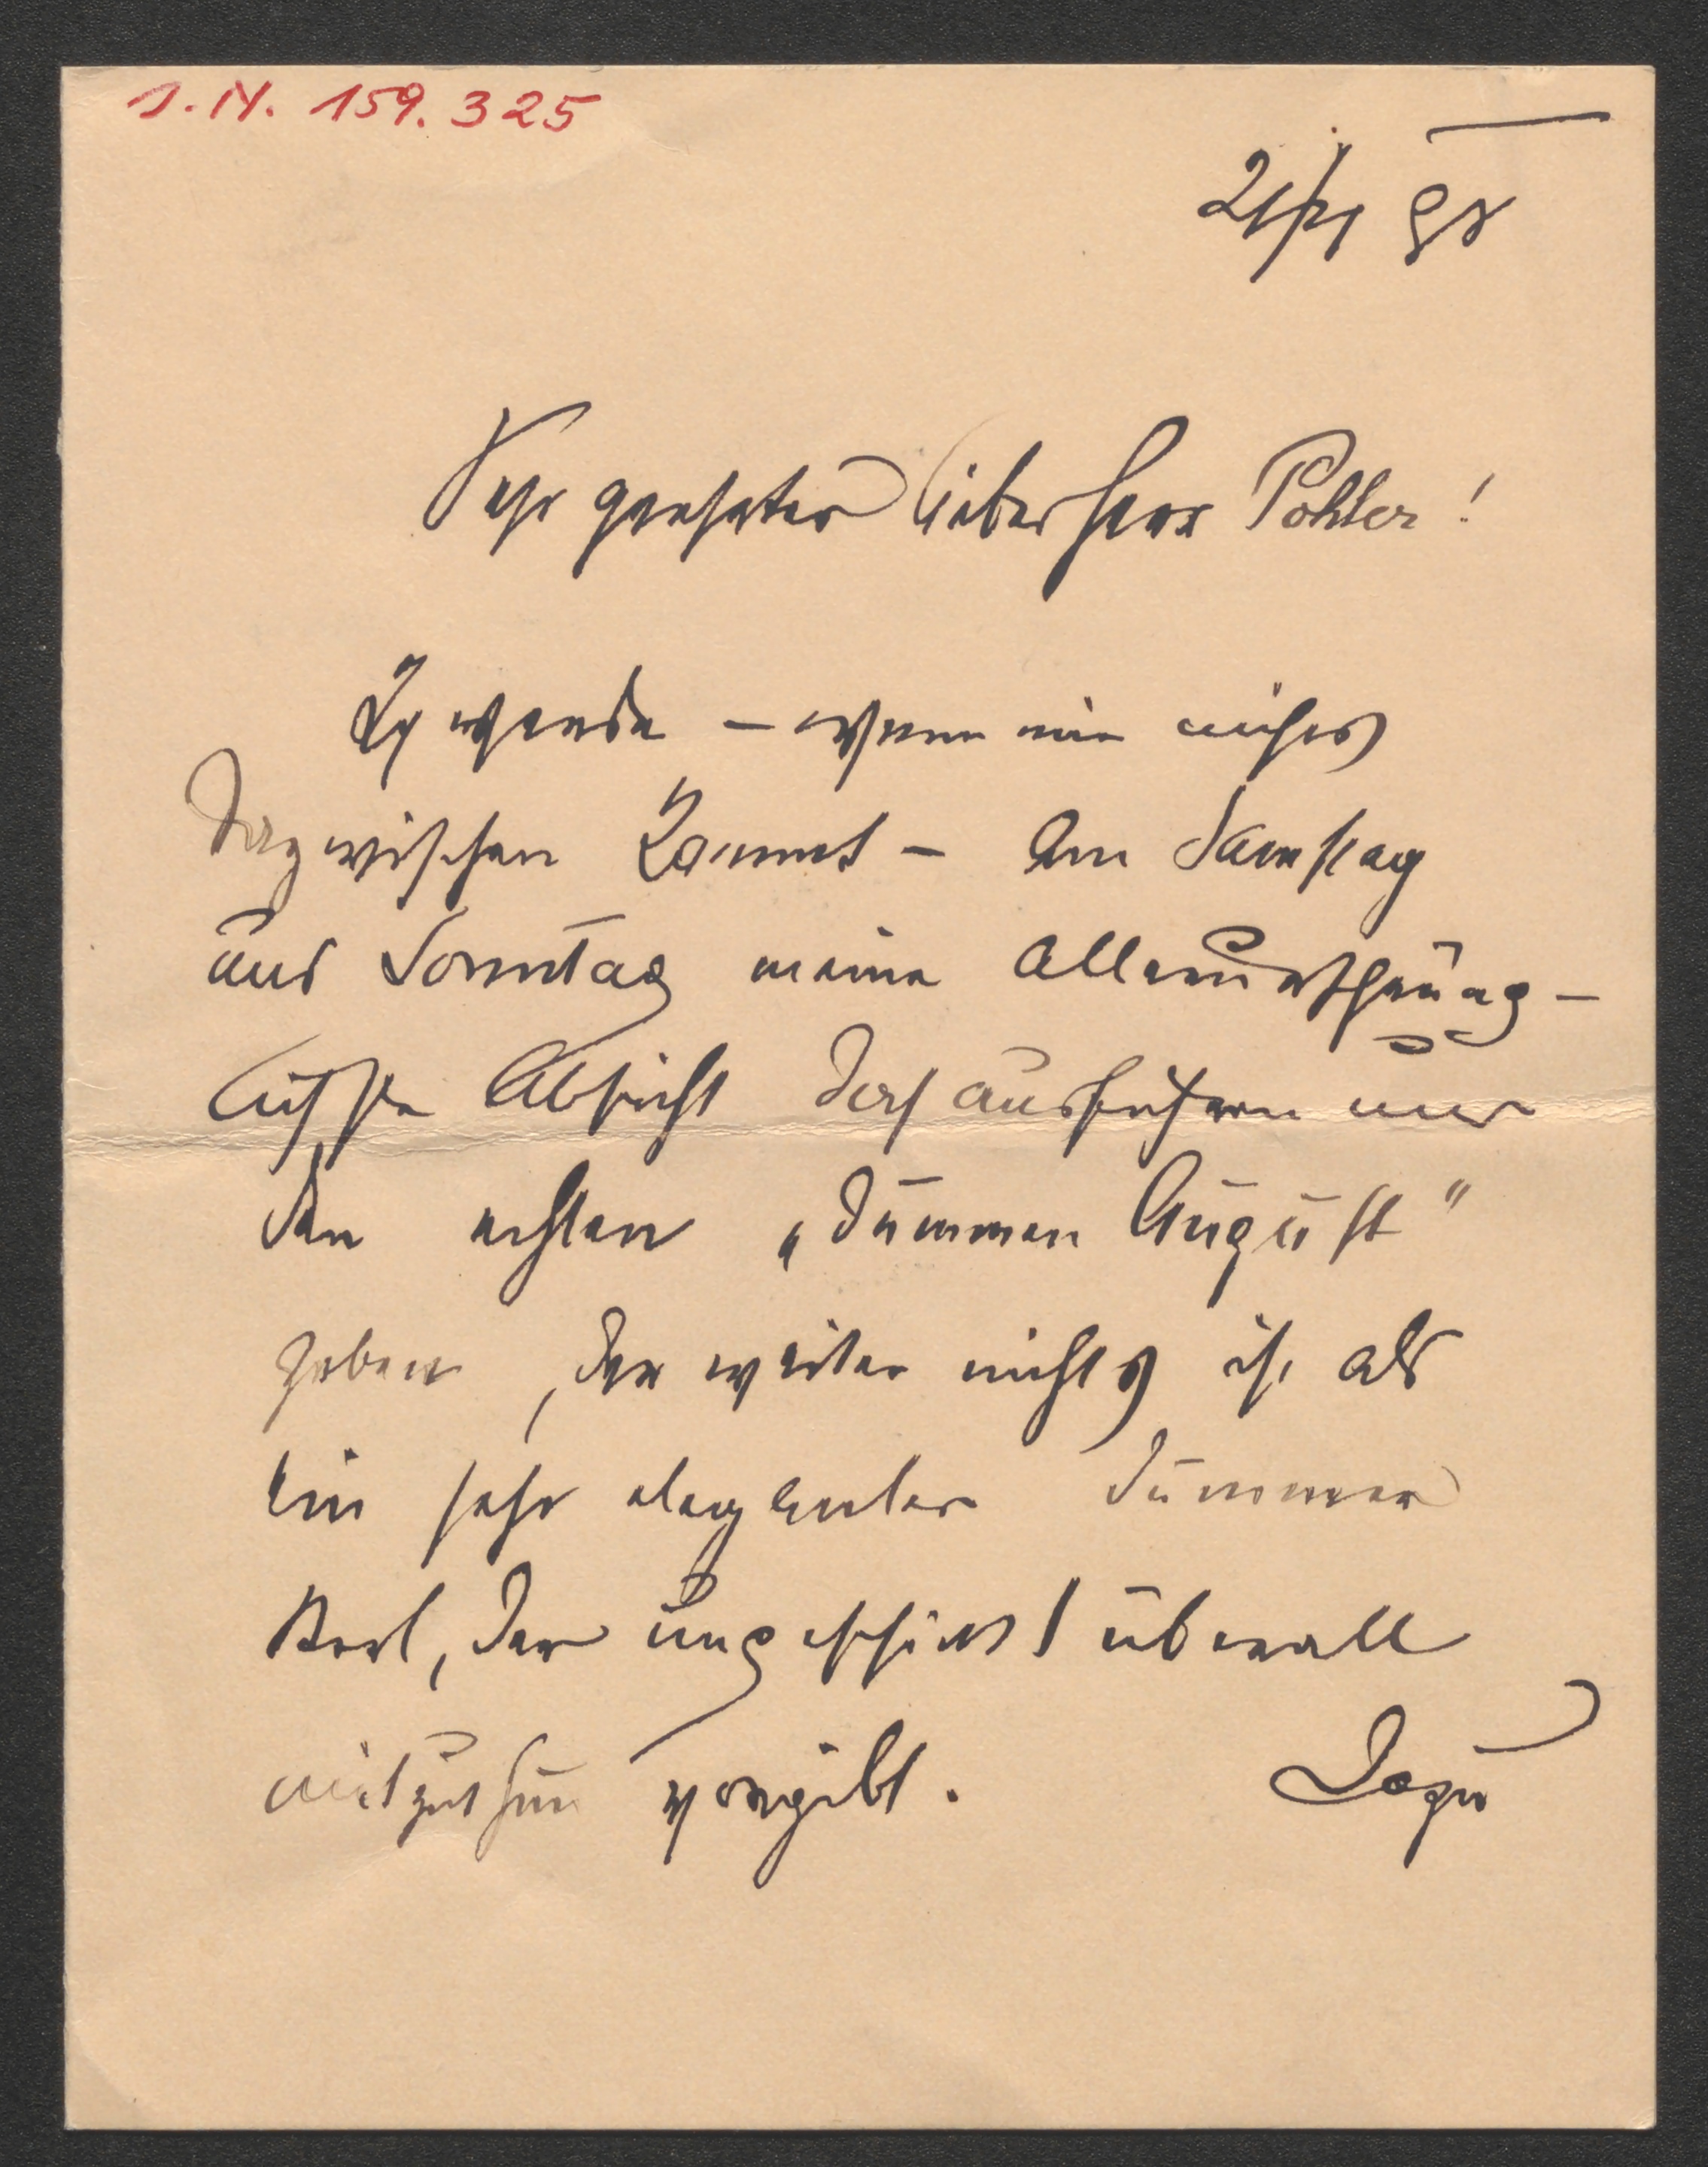 I. N. 159.325
21/XI 95
Sehr geehrter lieber Herr Pohler!
Ich werde – wenn mir nichts
dazwischen kommt – am Samstag
und Sonntag meine allerursprüng-
lichste Absicht doch ausführen und
den echten „dummen August"
geben, der weiter nichts ist als
ein sehr eleganter dummer
Kerl, der ungeschickt überall
mitzuthun vorgibt. Dazu